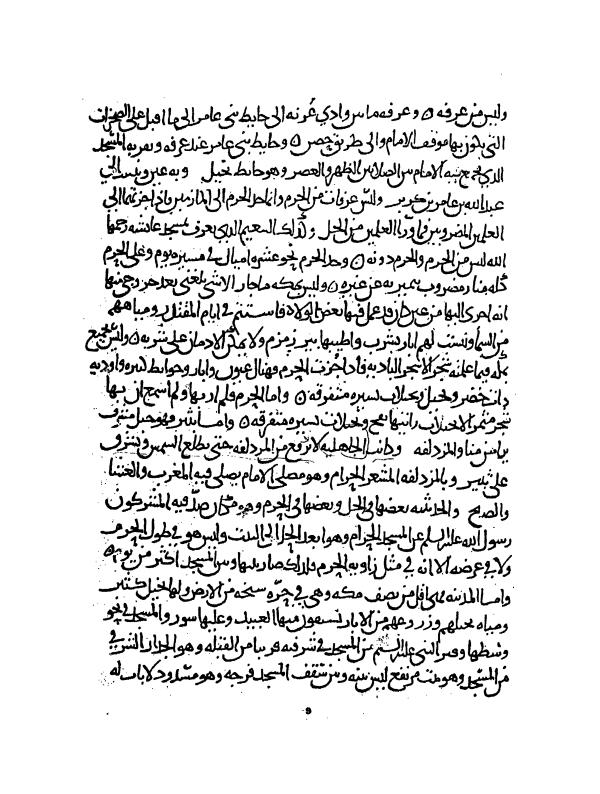 وليس من عرفه ٥ وعرفه ما بين وادي عرنه الى حايط بني عامر الى ما اقبل على الصخرات
التي يكون بها موقف الامام والى طريق حصن ٥ وحايط بني عامر عند عرفه وبقربه المسجد
الذي يجمع فيه الامام بين الصلاتين الظهر والعصر وهو حايط نخيل وبه عين وينسب الي
عبد الله بن عامر بن كريز وليس عرفات من الحرم وانما حد الحرم الى المازمين فاذا جزتهما الى
العلمين المضروبين فما ورآ العلمين من الحل وكذلك التنعيم الذي يعرف بمسجد عايشه رحمها
الله ليس من الحرم والحرم دونه ٥ وحد الحرم نحو عشره اميال في مسيره يوم وعلى الحرم
كله منار مضروب يتميز به عن غيره ٥ وليس بمكه ما جار الا شي بلغني بعد خروجي منها
انه اجري اليها من عين كان قد عمل فيها بعض الولاه فاستتم في ايام المقتدر ومياههم
من السما وليست لهم ابار تشرب واطيبها بير زمزم ولا يمكن الادمان على شربه ٥ وليس بجميع
مكه فيما علمته شجر الا شجر الباديه فاذا جزت الحرم فهناك عيون وابار وحوايط كثيره واوديه
ذات خضر ونخيل ونخلات يسيره متفرقه ٥ واما الحرم فلم ار بها ولم اسمع ان بها
شجر مثمر الا نخلات رايتها بفخ ونخلات يسيره متفرقه ٥ واما ثبير فهو جبل مشرف
يرا من منا والمزدلفه وكانت الجاهليه لا ترفع من المزدلفه حتى تطلع الشمس وتشرق
على ثبير وبالمزدلفه المشعر الحرام وهو مصلى الامام يصلي فيه المغرب والعشا
والصبح والحديبيه بعضها في الحل وبعضها في الحرم وهو مكان صد فيه المشركون
رسول الله عليه السلم عن المسجد الحرام وهو ابعد الحل الى البيت وليس هو في طول الحرم
ولا في عرضه الا انه في مثل زاويه الحرم فلذلك صار بينها وبين المسجد اكثر من يوم ٥
واما المدينه فهي اقل من نصف مكه وهي في حره سبخه من الارض ولها نخيل كثير
ومياه نخيلهم وزروعهم من الابار يستقون منها العبيد وعليها سور والمسجد في نحو
وسطها وقبر النبي عليه السلم من المسجد في شرقيه قريبا من القبله وهو الجدار الشرقي
من المسجد وهو بيت مرتفع ليس بينه وبين سقف المسجد فرجه وهو مسدود لا باب له
٩